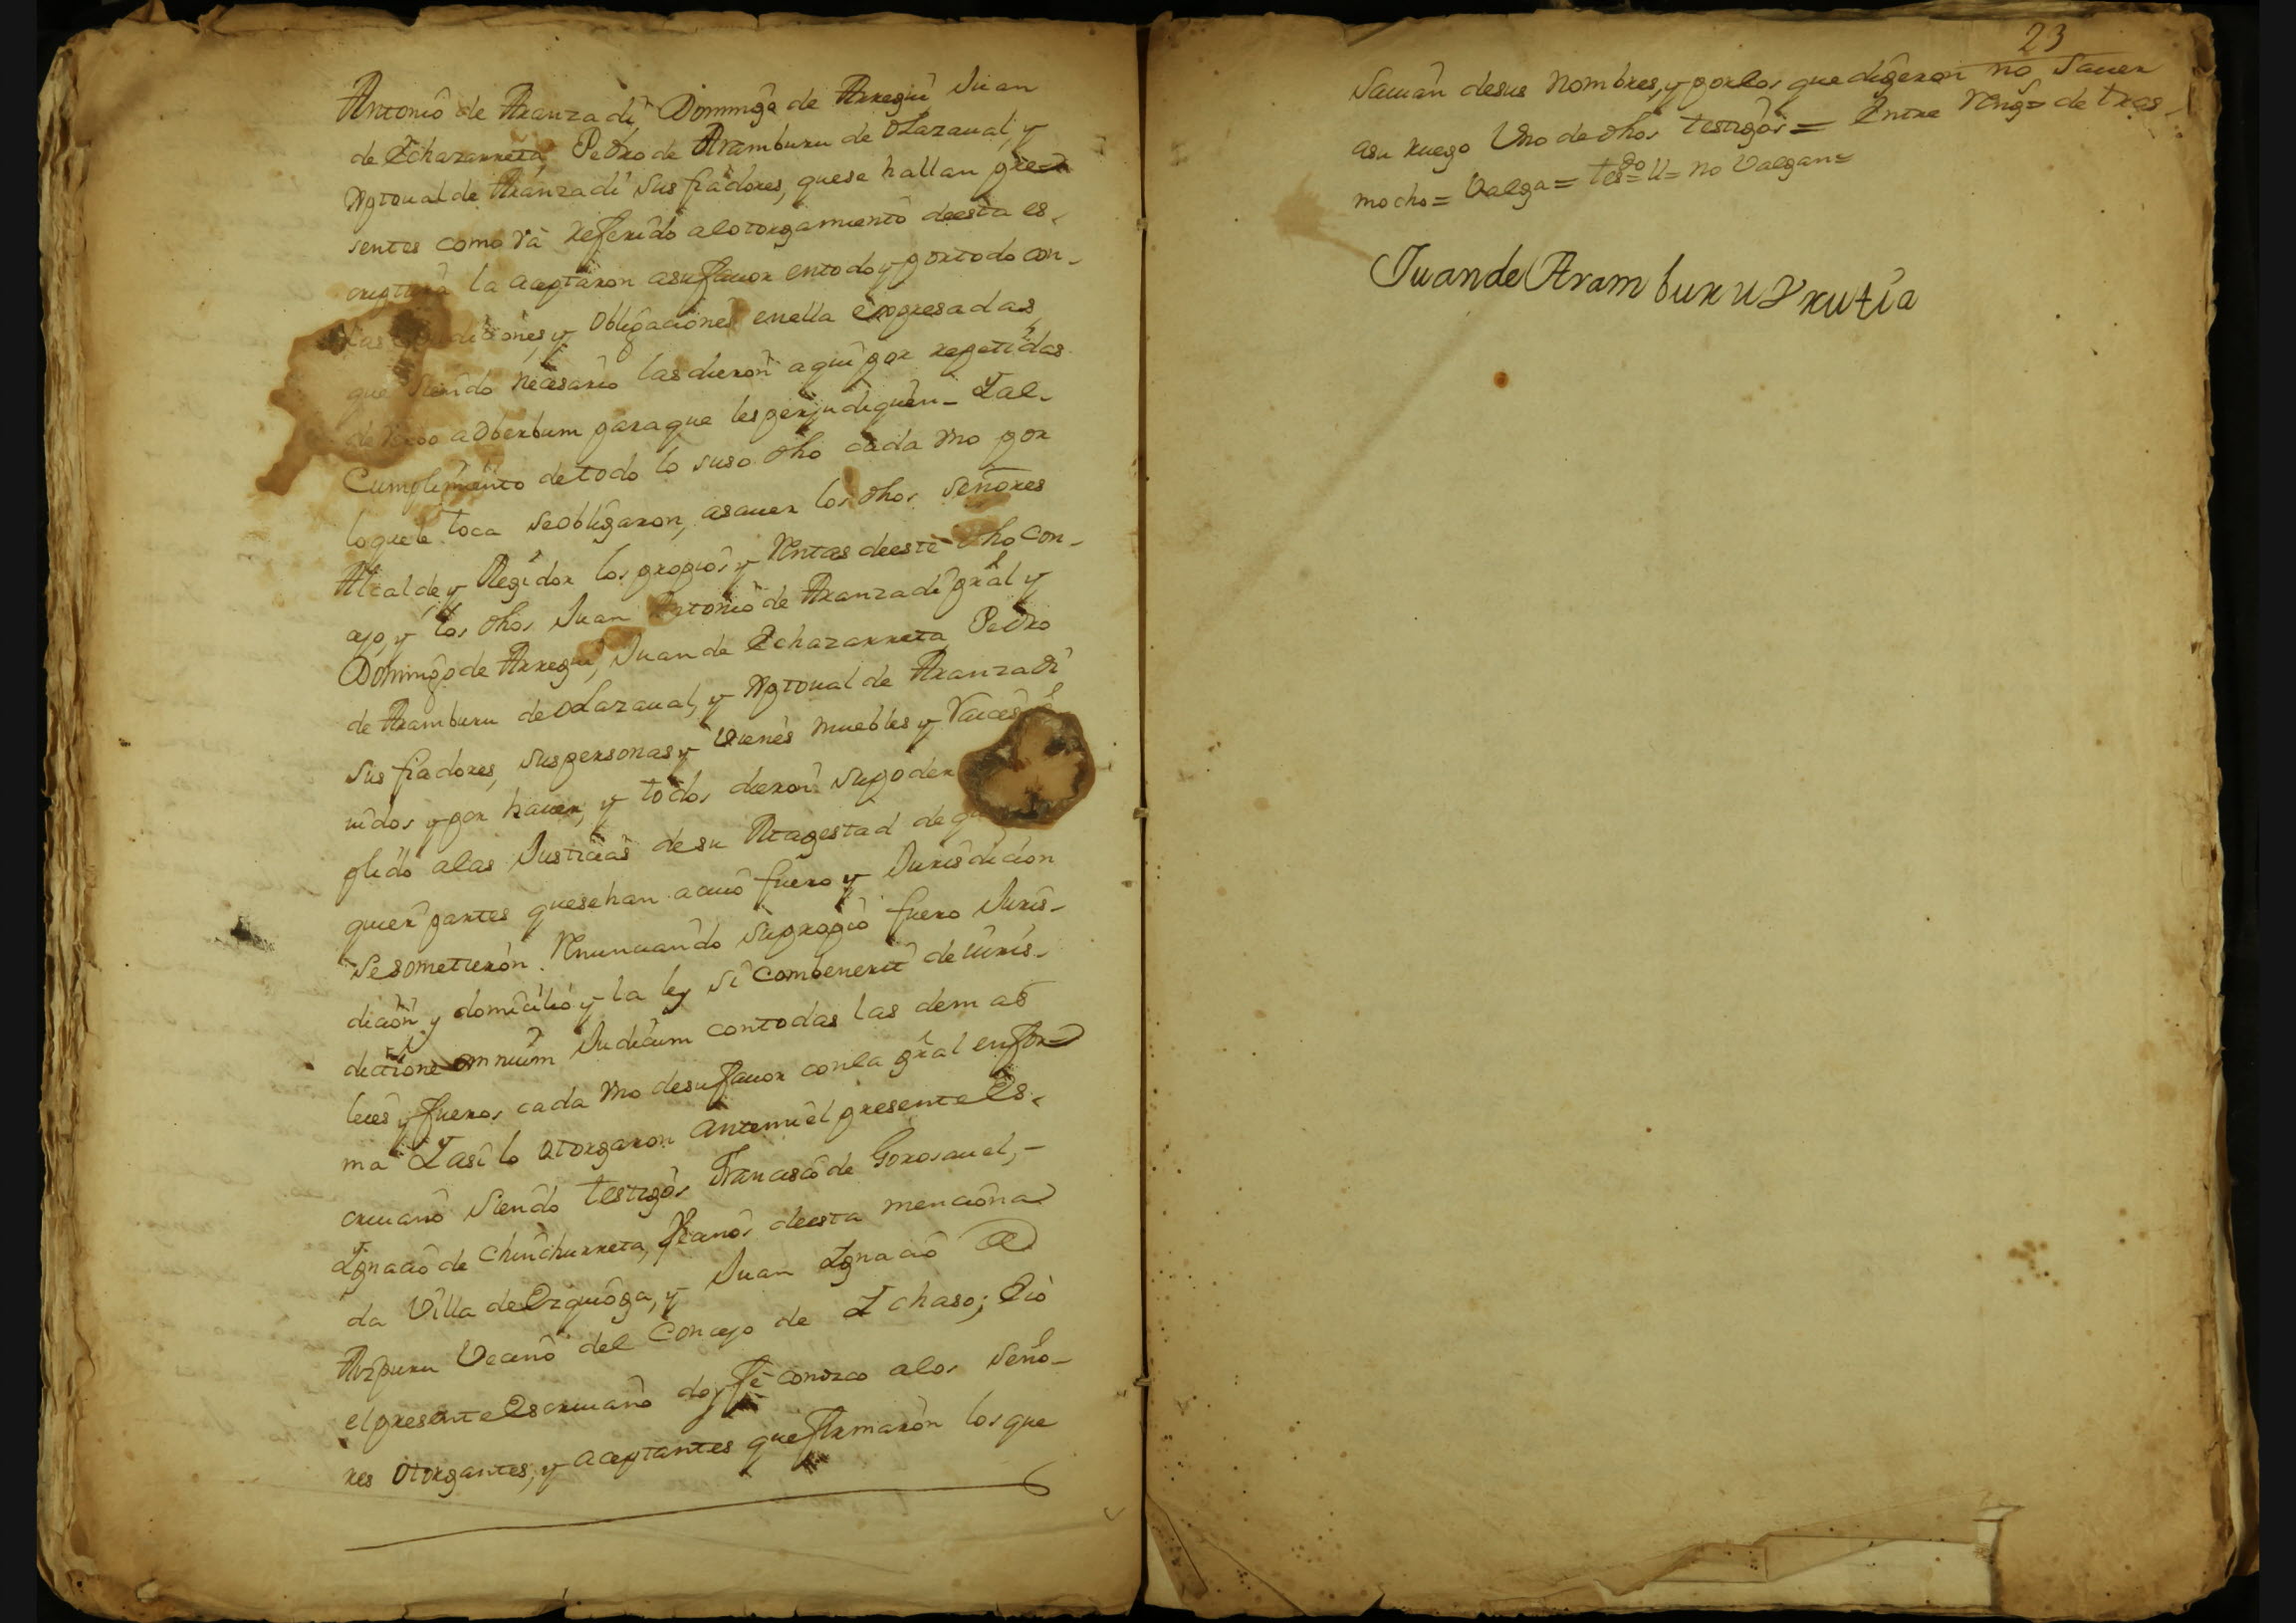 Antonio de Aranzadi Domingo de Arregui Juan
de Echazarreta Pedro de Aramburu de Olazaual, y
Xptoual de Aranzadi sus fiadores, quese hallan pre-
sentes como va referido alotorgamiento deesta es-
criptura la aceptaron asufauor entodo y portodo con
las condiciones, y obligaciones enella expresadas
que siendo necesario lasdieron aqui por repetidas
de verbo adberbum paraque lesperjudiquen - Yal-
Cumplimiento detodo lo suso dho cada vno por
loquele toca seobligaron, asauer los dhos señores
Alcalde, y Regidor los propios y Rentas deeste dho con-
cejo, y los dhos Juan Antonio de Aranzadi pral y
Domingo de Arregui, Juan de Echazarreta Pedro
de Aramburu de Olazaual, y Xptoual de Aranzadi
sus fiadores, suspersonas y vienes muebles y raices
uidos y por hauer, y todos dieron supoder
plido alas Justicias de su Magestad de
quier partes quesehan acuio fuero y Jurisdicion
sesometieron Renunciando supropio fuero Juris-
dicion y domicilio y la ley si combenerit de iuris-
dictione omnium Judicum contodas las demas
leies y fueros cada vno desufauor conla gral enfor
ma Yasi lo otorgaron antemi el presente Es-
criuano siendo testigos Francisco de Gorosauel, -
Ygnacio de Chinchurreta, vecinos deesta menciona
da Villa de Ezquioga, y Juan Ygnacio de
Aizpuru Vecino del Concejo de Ychaso; Eio
elpresente Escriuano doy fe conozco alos seño-
res otorgantes, y aceptantes quefirmaron losque
23
Sauian desus nombres, y porlos que digeron no Sauer
asu ruego Vno de dhos testigos = Entre Reng.s = de tras-
mocho = Valga = tes = do = U = no Valgan =
Juan de Aramburu Yrutia